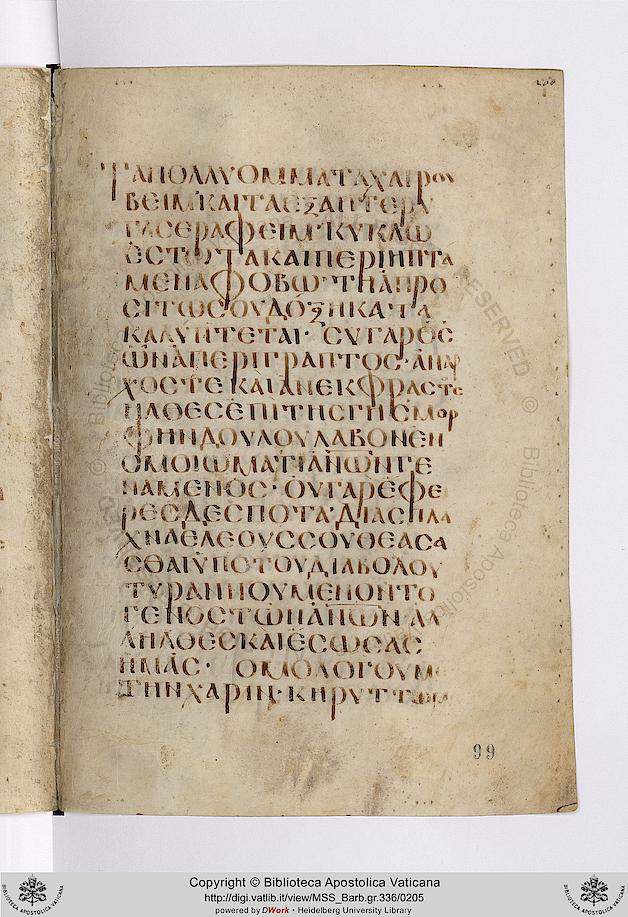 ΤΑΠΟΛΛΥΟΜΜΑΤΑΧΑΙΡΟΥ
ΒΕΙΜ·ΚΑΙΤΑΕΞΑΠΤΕΡΑ
ΓΑΣΕΡΑΦΕΙΜ·ΚΥΚΛΩ
ΕΣΤΩΤΑΚΑΙΠΕΡΙΗΠΤΑ
ΜΕΝΑΦΟΒΩ·ΤΗΑΠΡΟ
ΣΙΤΩΣΟΥΔΟΞΗΚΑΤΑ
ΚΑΛΥΠΤΕΤΑΙ· ΣΥΓΑΡΟΣ
ΩΝΑΠΕΡΙΓΡΑΠΤΟΣ·ΑΝΑΡ
ΧΟΣΤΕΚΑΙΑΝΕΚΦΡΑΣΤΕ
ΗΛΘΕΣΕΠΙΤΗΣΓΗΣΜΟΡ
ΦΗΝΔΟΥΛΟΥΛΑΒΟΝΕΝ
ΟΜΟΙΩΜΑΤΙΑΝΩΝΓΕ
ΝΑΜΕΝΟΣ· ΟΥΓΑΡΕΦΕ
ΡΕΣΔΕΣΠΟΤΑΔΙΑΣΠΛΑ
ΧΝΑΕΛΕΟΥΣΣΟΥΘΕΑΣΑ
ΣΘΑΙΥΠΟΤΟΥΔΙΑΒΟΛΟΥ
ΤΥΡΑΝΝΟΥΜΕΝΟΝΤΟ
ΓΕΝΟΣΤΩΝΑΝΩΝΑΛ
ΛΗΛΘΕΣΚΑΙΕΣΩΣΑΣ
ΗΜΑΣ· ΟΜΟΛΟΓΟΥΜΕ
ΤΗΝΧΑΡΙΝ·ΚΗΡΥΤΤΩΜ
99
Copyright © Biblioteca Apostolica Vaticana
http://digi.vatlib.it/view/MSS_Barb.gr.336/0205
powered by DWork • Heidelberg University Library